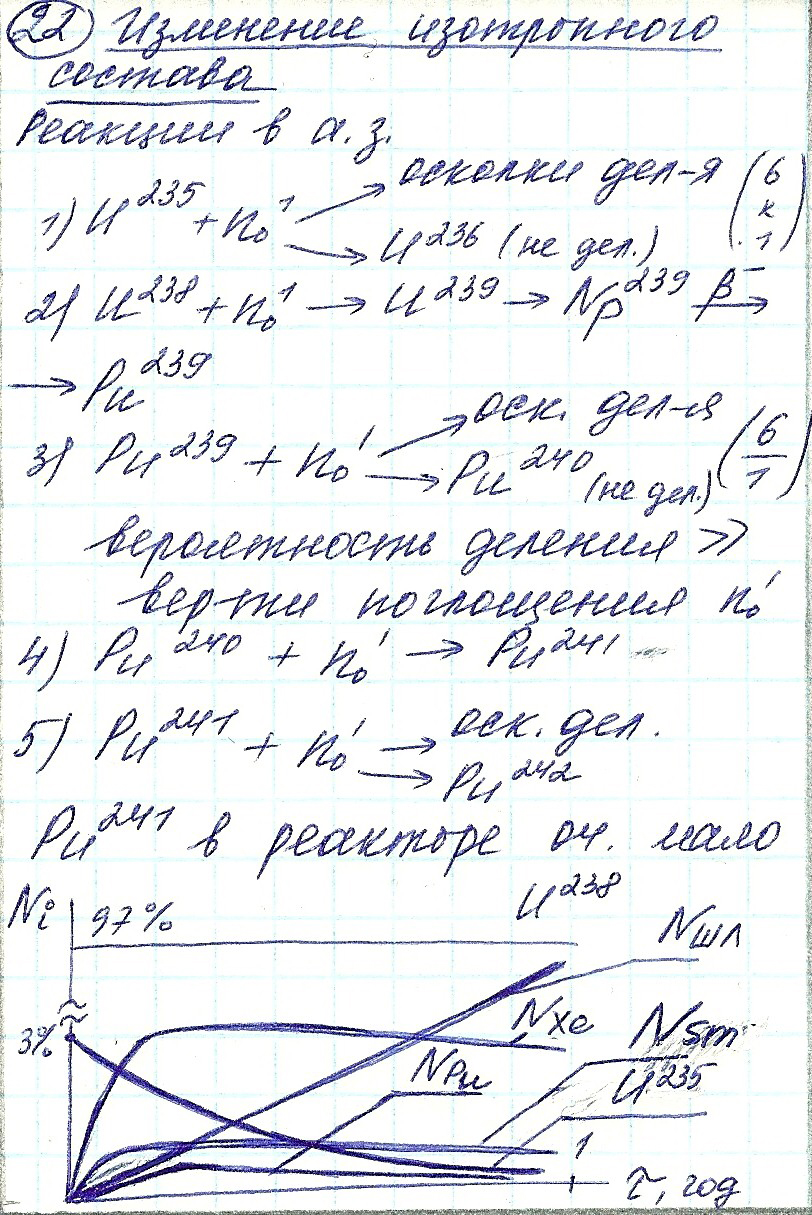 22 Изменение изотропного
состава
Реакции в а.з.
осколки дел-я (6 к 1)
1) U²³⁵ + n₀¹
U²³⁶ (не дел.)
2) U²³⁸ + n₀¹ → U²³⁹ → Np²³⁹ β⁻→
→ Pu²³⁹
оск. дел-я
3) Pu²³⁹ + n₀¹ → Pu²⁴⁰ (не дел.) (6/1)
вероятность деления >>
вер-ти поглощения n₀¹
4) Pu²⁴⁰ + n₀¹ → Pu²⁴¹
5) Pu²⁴¹ + n₀¹ → оск. дел.
→ Pu²⁴²
Pu²⁴¹ в реакторе оч. мало
Ni 97% U²³⁸
Nшл
3% NXe NSm
NPu U²³⁵
1
τ, год